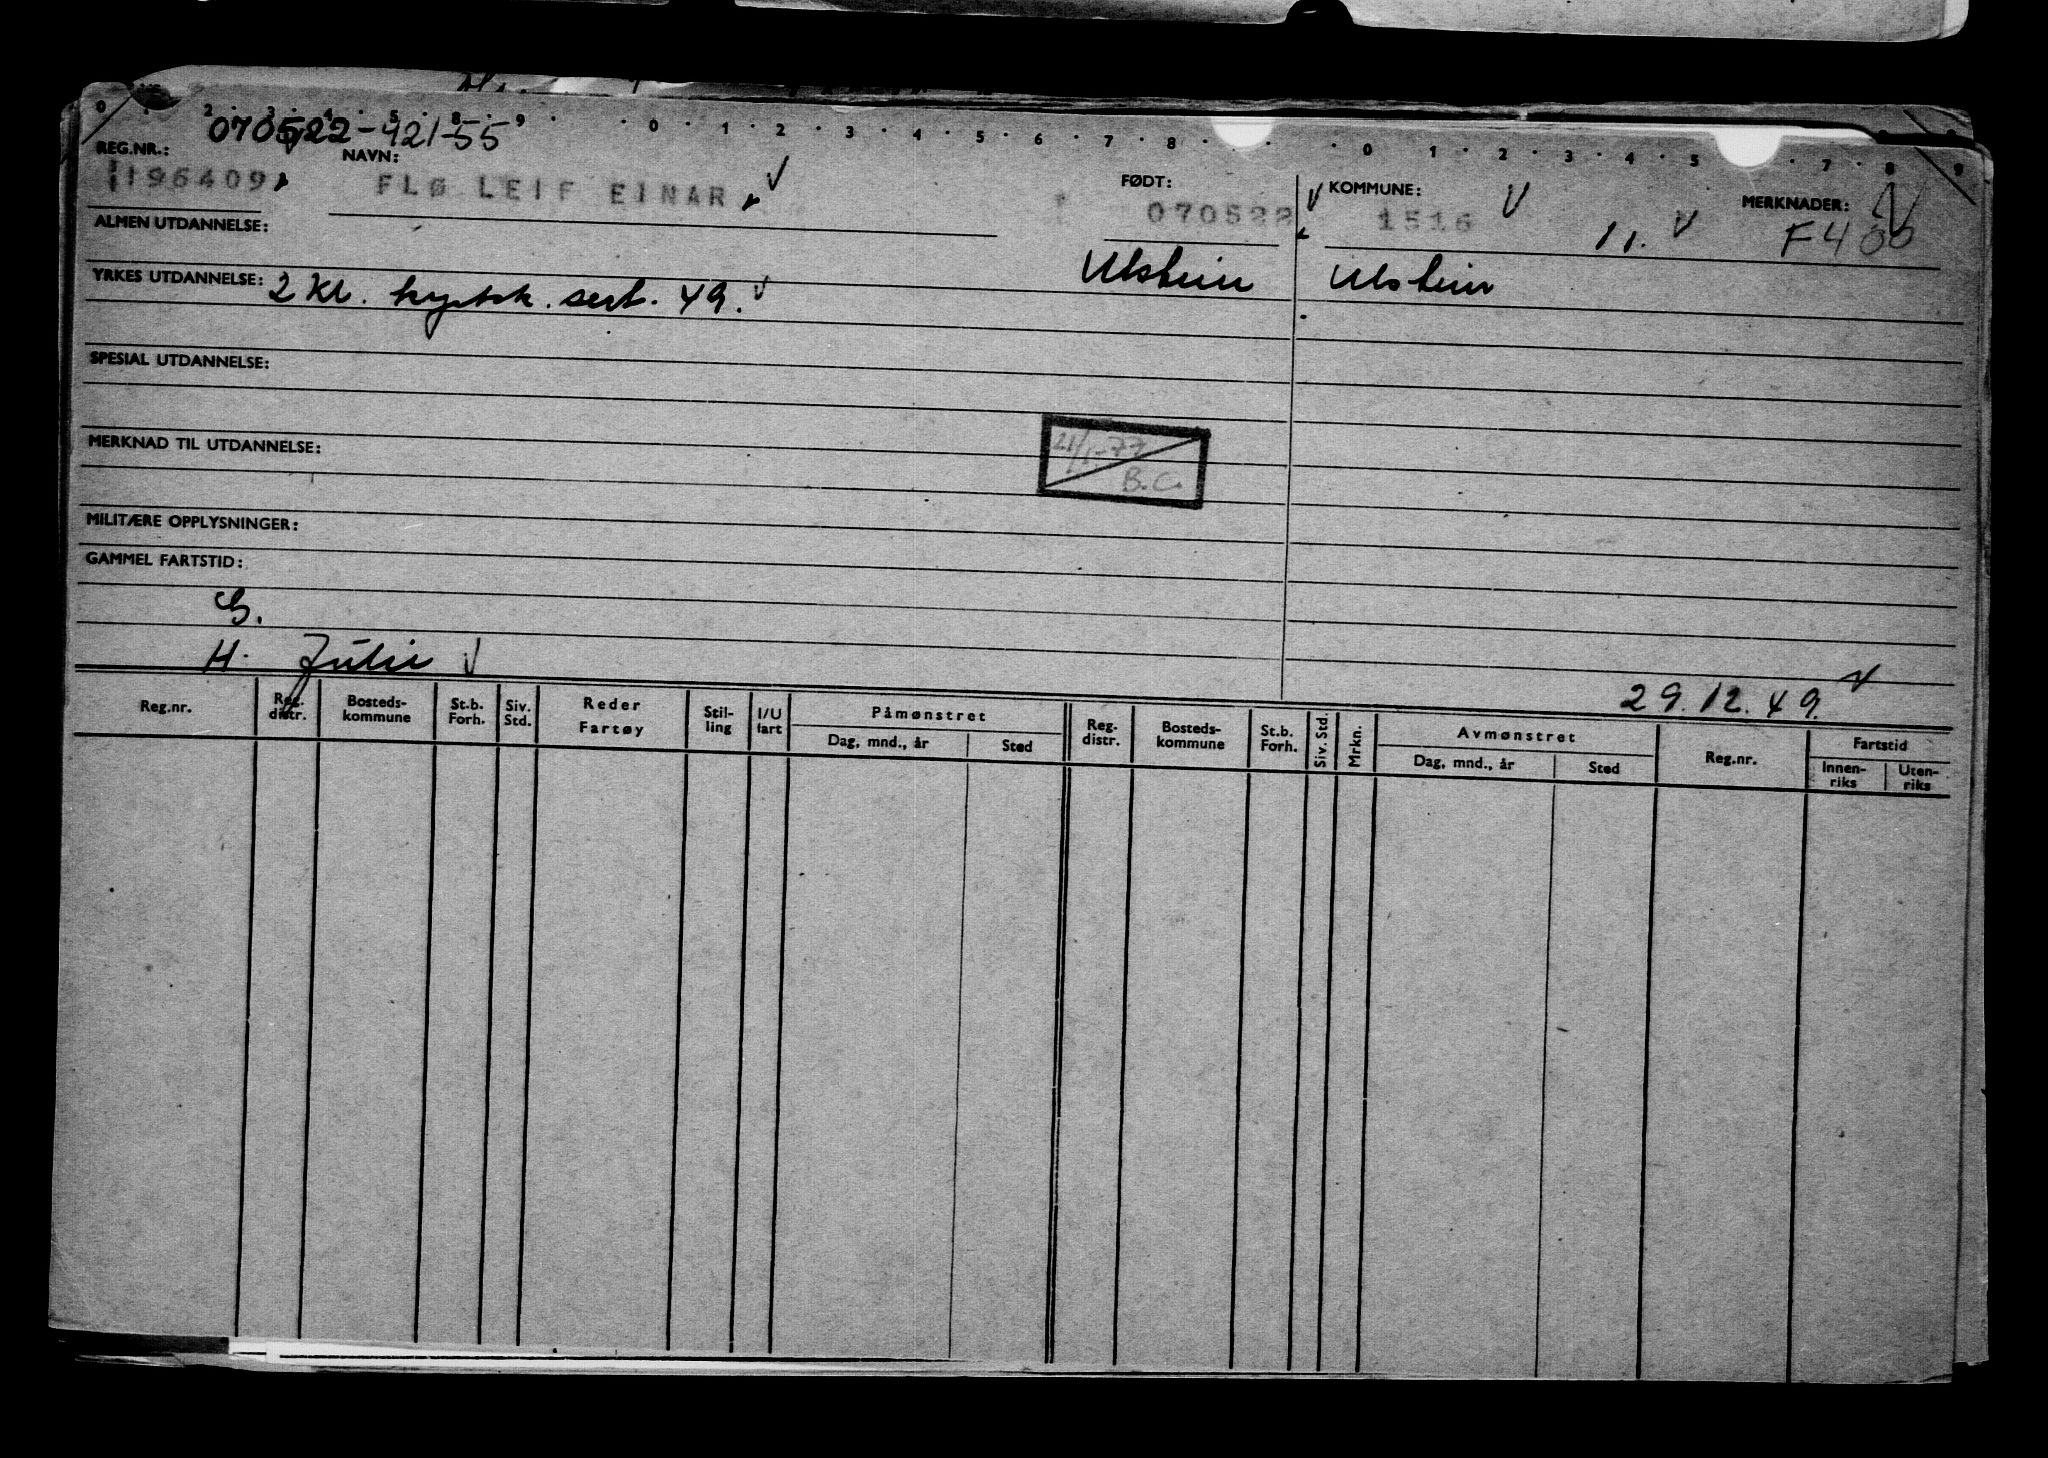 0 1 2 3 4 5 8 9 0 1 2 3 4 5 6 7 8 0 1 2 3 4 5 7 8 9
070522-42155
REG.NR.: NAVN: FØDT: KOMMUNE: MERKNADER:
196409 FLØ LEIF EINAR 070522 1516 11. F400
ALMEN UTDANNELSE:
Ulstein Ulstein
YRKES UTDANNELSE: 2 kl. kystsk. sert. 49.
SPESIAL UTDANNELSE:
MERKNAD TIL UTDANNELSE:
21/1-77
B.C.
MILITÆRE OPPLYSNINGER:
GAMMEL FARTSTID:
G.
H. Julie
29.12.49.
Reg.nr. Reg. distr. Bosteds-kommune St.b. Forh. Siv. Std. Reder Fartøy Stil-ling I/U fart Påmønstret Reg. distr. Bosteds-kommune St.b. Forh. Siv. Std. Mrkn. Avmønstret Reg.nr. Fartstid
Dag, mnd., år Sted Dag, mnd., år Sted Innen-riks Uten-riks